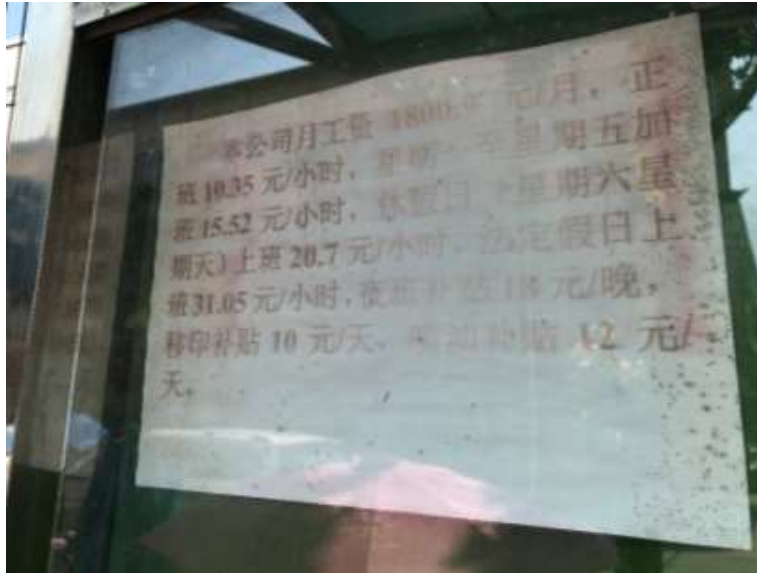 本公司月工资 1800.0 元/月，正
班 10.35 元/小时，星期一至星期五加
班 15.52 元/小时，休假日（星期六星
期天）上班 20.7 元/小时，法定假日上
班 31.05 元/小时，夜班补贴 18 元/晚，
移印补贴 10 元/天，喷油补贴 12 元/
天。